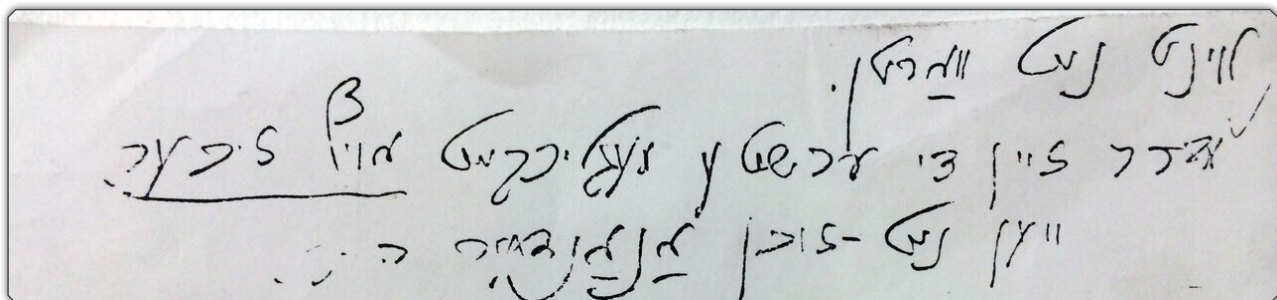 לוינט ניט וואַרטן.
אָדער זיין די ערשטע מעגליכקייט אויף זיכער
ווען ניט - זוכן אַן אַנדער